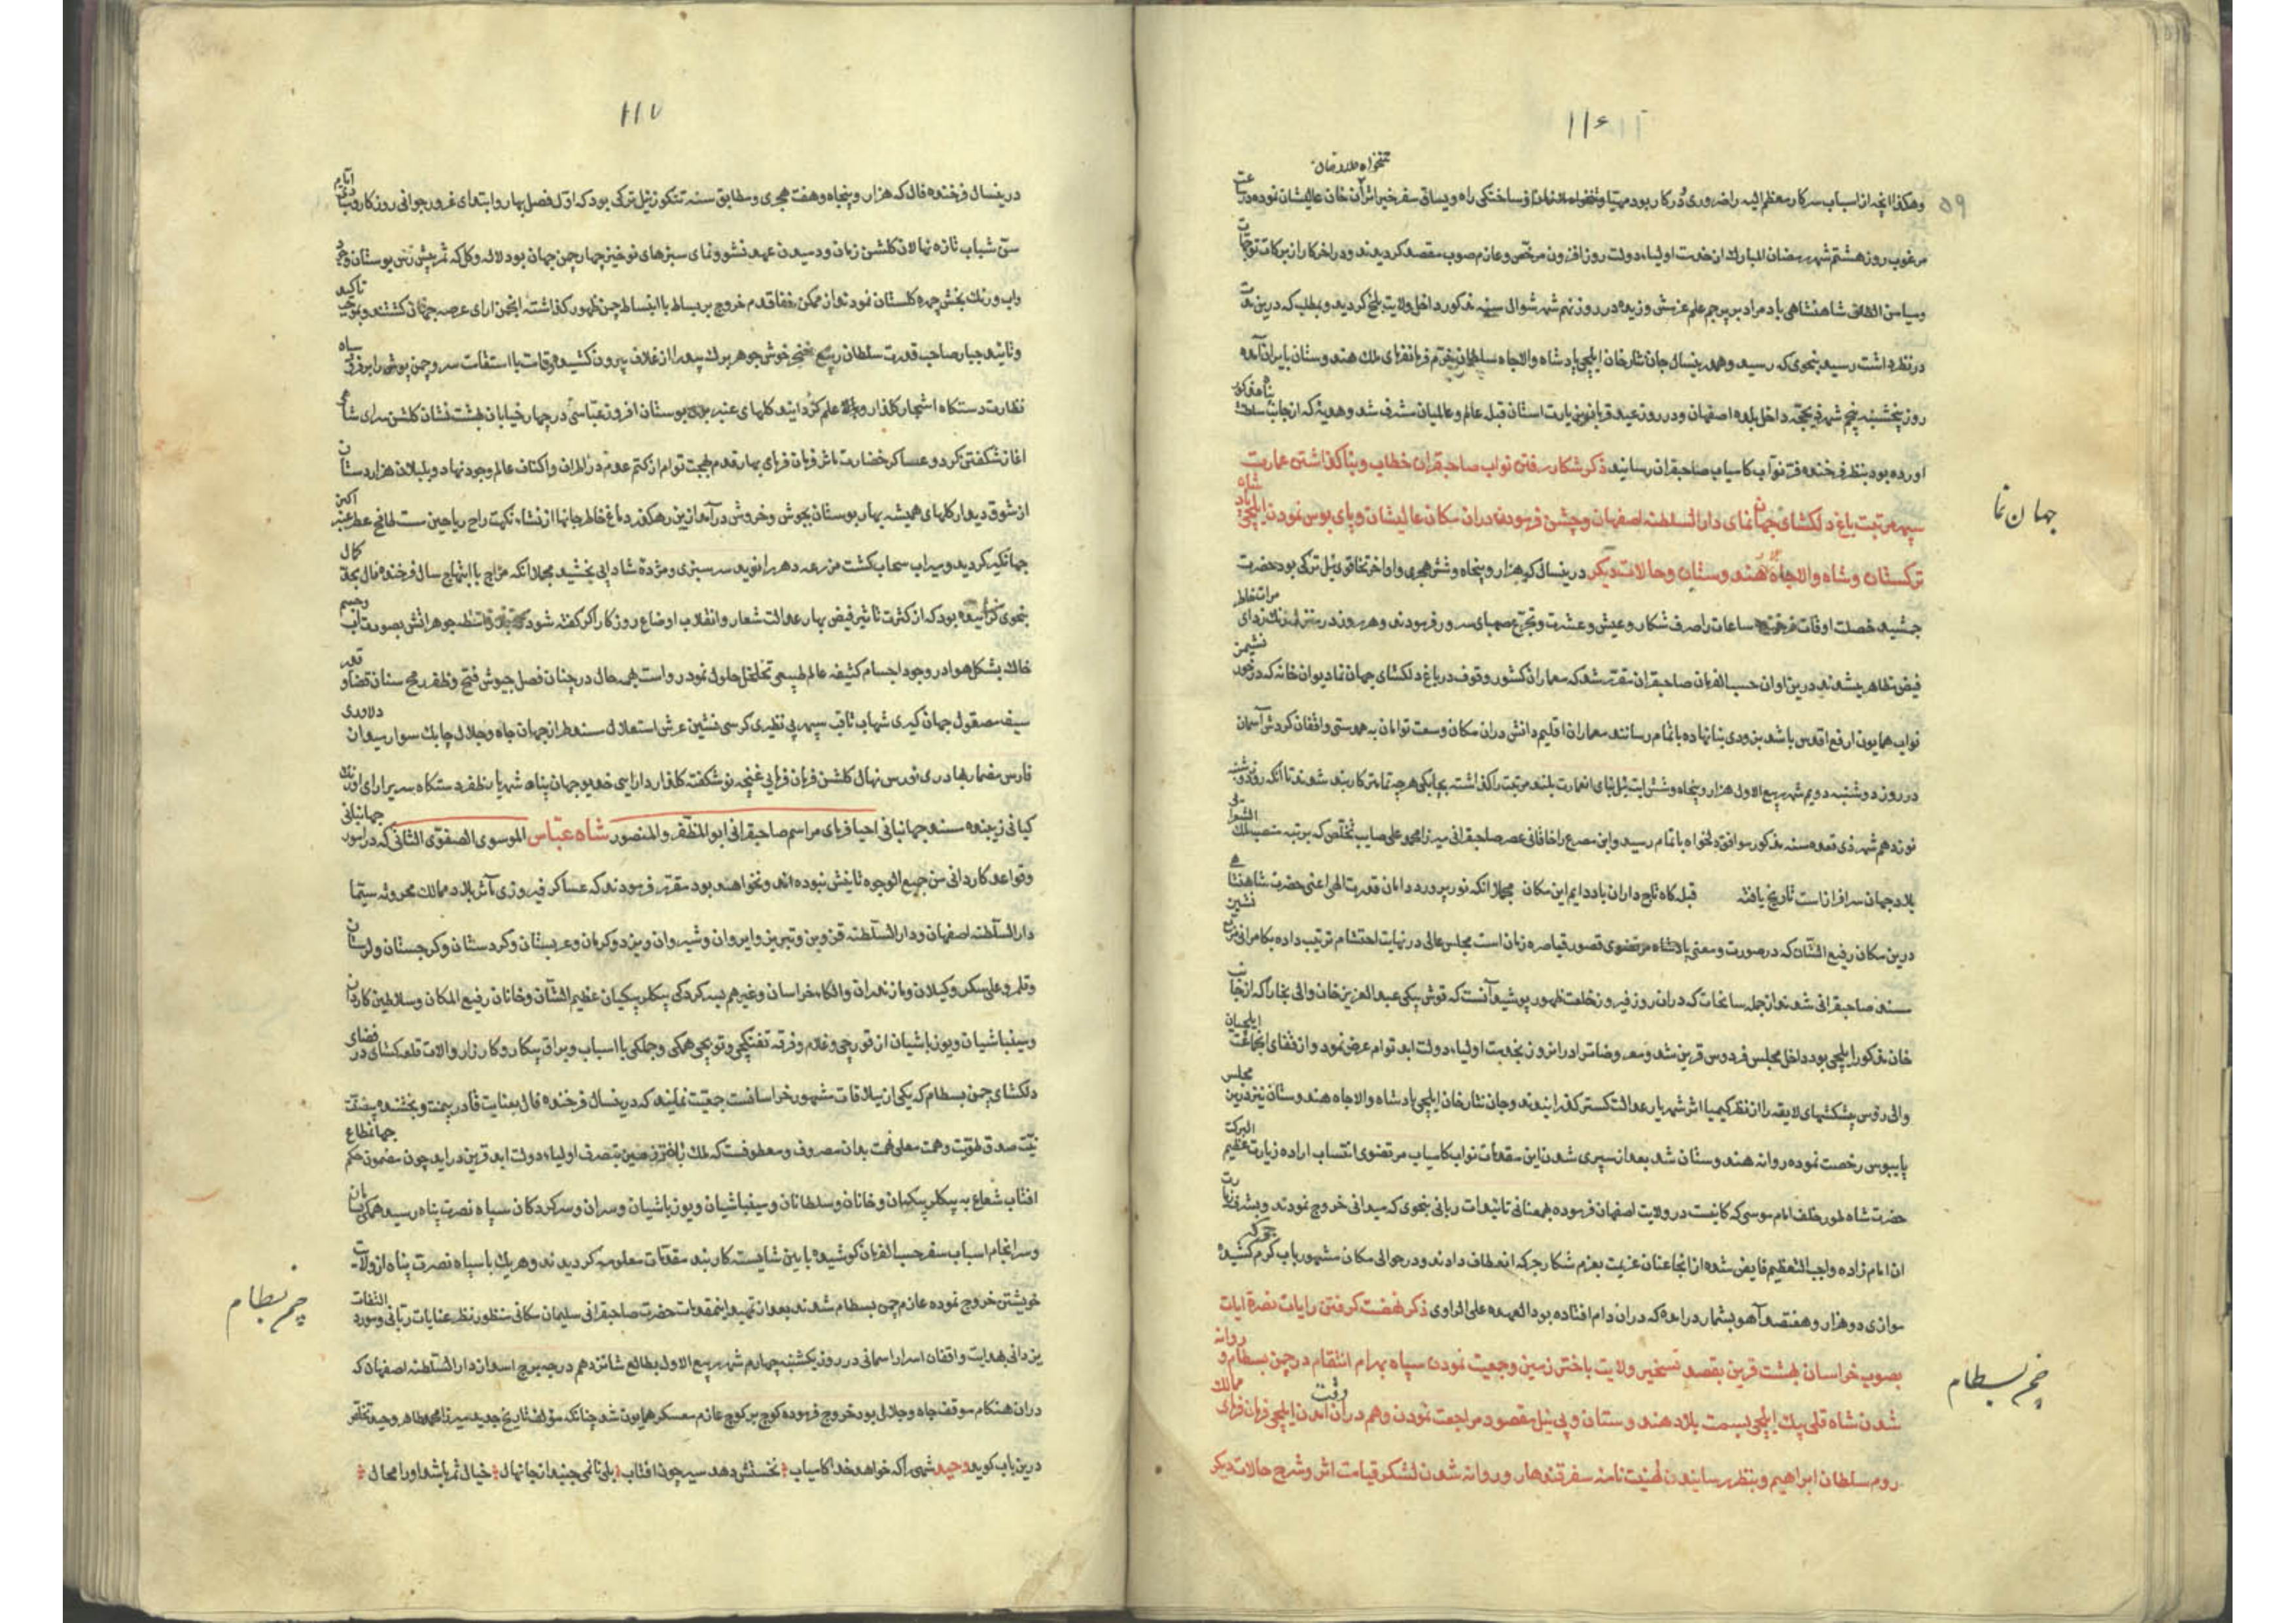 ۱۱۶
۵۹
وهکذا انچه از اسباب سرکار معظم الیه را ضروری و در کار بود مهیا و ساختکی راه و یساق سفر خیر اثر آن خان عالیشان نموده
مرغوب روز هشتم شهر رمضان المبارک از خدمت اولیاء دولت روز افزون مرخص و عازم صوب مقصد کردیدند و در اخر کار از برکات
ومیامن الطاف شاهنشاهی باد مراد بر پرچم علم عزمش وزیده در روز نهم شهر شوال سنه مذکور داخل ولایت بلخ کردید و بمطلب که درین
در نظر داشت رسید بنحوی که رسید و هم درینسال جان نثار خان ایلچی پادشاه والاجاه فرمانفرمای ملک هندوستان بایران آمده
روز پنجشنبه پنجم شهر ذیحجه داخل بلده اصفهان و در روز عید قربان بزیارت استان قبله عالم و عالمیان مشرف شد و هدیه که از جانب
اورده بود بنظر فرخنده فر نواب کامیاب صاحبقران رسانید ذکر شکار رفتن نواب صاحبقران خطاب و بنا کذاشتن عمارت
سپهر مرتبت باغ دلکشای جهان نمای دار السلطنه اصفهان و جشن فرمودن دران مکان عالیشان و پای بوس نمودن ایلچی
جهان نما
ترکستان و شاه والاجاه هندوستان و حالات دیکر درینسال که هزار و پنجاه و شش هجری و اواخر تخاقوی ئیل ترکی بود حضرت
جمشید خصلت اوقات ساعات را صرف شکار و عیش و عشرت و تجرع صهبای سرور فرمودند و هر روز در منزل
فیض ظاهر میشدند درین اوان حسب الفرمان صاحبقران مقرر شد که معماران کشور وقوف در باغ دلکشای جهان نما دیوان خانه که در خور نشیمن
نواب همایون ارفع اقدس باشد بزودی بنا نهاده باتمام رسانند معماران اقلیم دانش دران مکان وسعت توامان به همدستی واقفان کردش آسمان
در روز دوشنبه دویم شهر ربیع الاول هزار و پنجاه و شش ایت ئیل بنای انعمارت بلند مرتبت را کذاشته بچابکی هرچه تمامتر کاربند شدند تا انکه روز
نوزدهم شهر ذی قعده سنه مذکور موافق دلخواه باتمام رسید و این مصرع را خاقانی عصر صاحبقرانی میرزا محمد علی صایب تخلص که برتبه منصب ملک الشعرا
بلاد جهان سرافراز است تاریخ یافته قبله کاه تاج داران باد دایم این مکان مجملا انکه نور پرورد دامان قدرت الهی اعنی حضرت شاهنشاهی
درین مکان رفیع الشان که در صورت و معنی قصور قیاصره زمان است مجلس عالی در نهایت احتشام ترتیب داده بکامرانی
مسند صاحبقرانی شدند از جمله سانحات که دران روز فیروز بخلعت ظهور پوشید آنست که قوش بیکی عبد العزیز خان والی بخارا که از جانب
خان مذکور ایلچی بود داخل مجلس فردوس قرین شد و معروضاتر ادرانروز بخدمت اولیاء دولت ابد توام عرض نمود و از قفای ایلچیان
والی روس پیشکشهای لایقه را از نظر کیمیا اثر شهریار عدالت کستر کذرانیدند و جان نثار خان ایلچی پادشاه والاجاه هندوستان نیز درین مجلس
پایبوس رخصت نموده روانه هندوستان شد بعد از سپری شدن این مقدمات نواب کامیاب مرتضوی انتساب اراده زیارت
حضرت شاه طور خلف امام موسی که کاینست در ولایت اصفهان فرموده بهمعنانی تائیدات ربانی بنحوی که میدانی خروج نمودند و بشرف
ان امام زاده واجب التعظیم فایض شده از انجا عنان عزیمت بعزم شکار جرکه انعطاف دادند و در حوالی مکان مشهور بباب کرم کشیده
موازی دو هزار و هفتصد آهو بشمار درامده که دران دام افتاده بود العهده علی الراوی ذکر نهضت کرفتن رایات نصرة ایات
بصوب خراسان بهشت قرین بقصد تسخیر ولایت باختر زمین و جمعیت نمودن سپاه بهرام انتقام در چمن بسطام و روانه
چمن بسطام
شدن شاه قلی بیک ایلچی بسمت بلاد هندوستان و بی نیل مقصود مراجعت نمودن و هم دران وقت امدن ایلچی فرمان فرمای ممالک
روم سلطان ابراهیم و بنظر رسانیدن تهنیت نامه سفر قندهار و روانه شدن لشکر قیامت اثر و شرح حالات دیکر
۱۱۷
درینسال فرخنده فال که هزار و پنجاه و هفت هجری و مطابق سنه تنکوزئیل ترکی بود که اول فصل بهار و ابتدای غرور جوانی روزکار
سن شباب تازه نهالان کلشن زمان و دمیدن عهد نشو و نمای سبزهای نوخیز چهار چمن جهان بود لاله و کل که ثمر پیش رس بوستان
واب و رنک بخش چهره کلستان نمودند از ممکن خفا قدم خروج بر بساط با انبساط چمن ظهور کذاشته انجمن ارای عرصه جهان کشتند
وتائید جبار صاحب قدرت سلطان ربیع خنجر خوش جوهر برک بید را از غلاف بیرون کشیده وقامت با استقامت سرو چمن
نظارت دستکاه اشجار کلذار و علم کردانیده کلهای عنبر بوستان افروز عباسی در چهار خیابان بهشت نشان کلشن سرای
اغاز شکفتن کرد و عساکر خضارت ماثر فرمان فرمای بهار قدم بهجت توام از کتم عدم در اطراف و اکناف عالم وجود نهاد و بلبلان هزار دستان
از شوق دیدار کلهای همیشه بهار بوستان بجوش و خروش درآمد ازین رهکذر دماغ خاطر جانها از نشاء نکهت راح ریاحین مست
جهانکیر کردید و سیراب سحاب کشت مزرعه دهر را نوید سرسبزی و مژده شادابی بخشید مجملا انکه مزاج با ابتهاج سال فرخنده فال
بنحوی کرائیده بود که از کثرت تاثیر فیض بهار عدالت شعار و انقلاب اوضاع روزکار اکر کفته شود جوهر اتش بصورت اب
خاک بشکل هوا در وجود اجسام کثیفه عالم طبیعی تخلخل حلول نمود رواست بهر حال در چنان فصل جیوش فتح و ظفر رمح سنان قضا و قدر
سیف مصقول جهان کیری شهاب ثاقب سپهر بی نظیری کرسی نشین عرش استعلال مسند طراز جهان جاه و جلال چابک سوار میدان دلاوری
فارس مضمار بهادری نورس نهال کلشن فرمان فرمایی غنچه نوشکفته کلذار دارایی خدیو جهان پناه شهریار ظفر دستکاه سریر ارای
کیانی زیبنده مسند جهانبانی احیا فرمای مراسم صاحبقرانی ابو المظفر و المنصور شاه عباس الموسوی الصفوی الثانی که در امور جهانبانی
وقواعد کاردانی من جمیع الوجوه ثانیش نبوده اند و نخواهند بود مقرر فرمودند که عساکر فیروزی مآثر بلاد ممالک محروسه سیما
دار السلطنه اصفهان و دار السلطنه قزوین و تبریز و ایروان و شیروان و یزد و کرمان و عربستان و کردستان و کرجستان و لرستان
وقلمرو علی شکر و کیلان و مازندران و الکاء خراسان و غیرهم بسرکردکی بیکلر بیکیان عظیم الشان و خانان رفیع المکان و سلاطین کاردان
ومینباشیان و یوزباشیان از قورچی و غلام و فرقه تفنکچی و توپچی همکی و جملکی با اسباب و یراق پیکار و کارزار و الات قلعه کشای در فضای
دلکشای چمن بسطام که یکی از ییلاقات مشهور خراسانست جمعیت نمایند که درینسال فرخنده فال بعنایت قادر بیمنت
نیت صدق طویت و همت معلی نهمت بدان مصروف و معطوفست که ملک باختر زمین بتصرف اولیاء دولت ابد قرین دراید چون مضمون حکم جهانمطاع
افتاب شعاع به بیکلر بیکیان و خانان و سلطانان و مینباشیان و یوزباشیان و سران و سرکردکان سپاه نصرت پناه رسید همکی
وسرانجام اسباب سفر حسب الفرمان کوشیده بایین شایسته کاربند مقدمات معلومه کردیدند و هریک با سپاه نصرت پناه از ولایت
خویشتن خروج نموده عازم چمن بسطام شدند بعد از تمهید اینمقدمات حضرت صاحبقرانی سلیمان مکانی منظور نظر عنایات ربانی و مورد التفات
چمن بسطام
یزدانی بهدایت واقفان اسرار اسمانی در روز یکشنبه چهارم شهر ربیع الاول بطالع شانزدهم درجه برج اسد از دار السلطنه اصفهان که
دران هنکام موقف جاه و جلال بود خروج فرموده کوچ بر کوچ عازم معسکر همایون شد چنانکه مؤلف تاریخ جدید میرزا محمد طاهر وحید تخلص
درین باب کوید وحید شهی را که خواهد خدا کامیاب نخستش دهد سیر چون افتاب بلی تا نمی جنبد از جا نهال خیال ثمر باشد او را محال